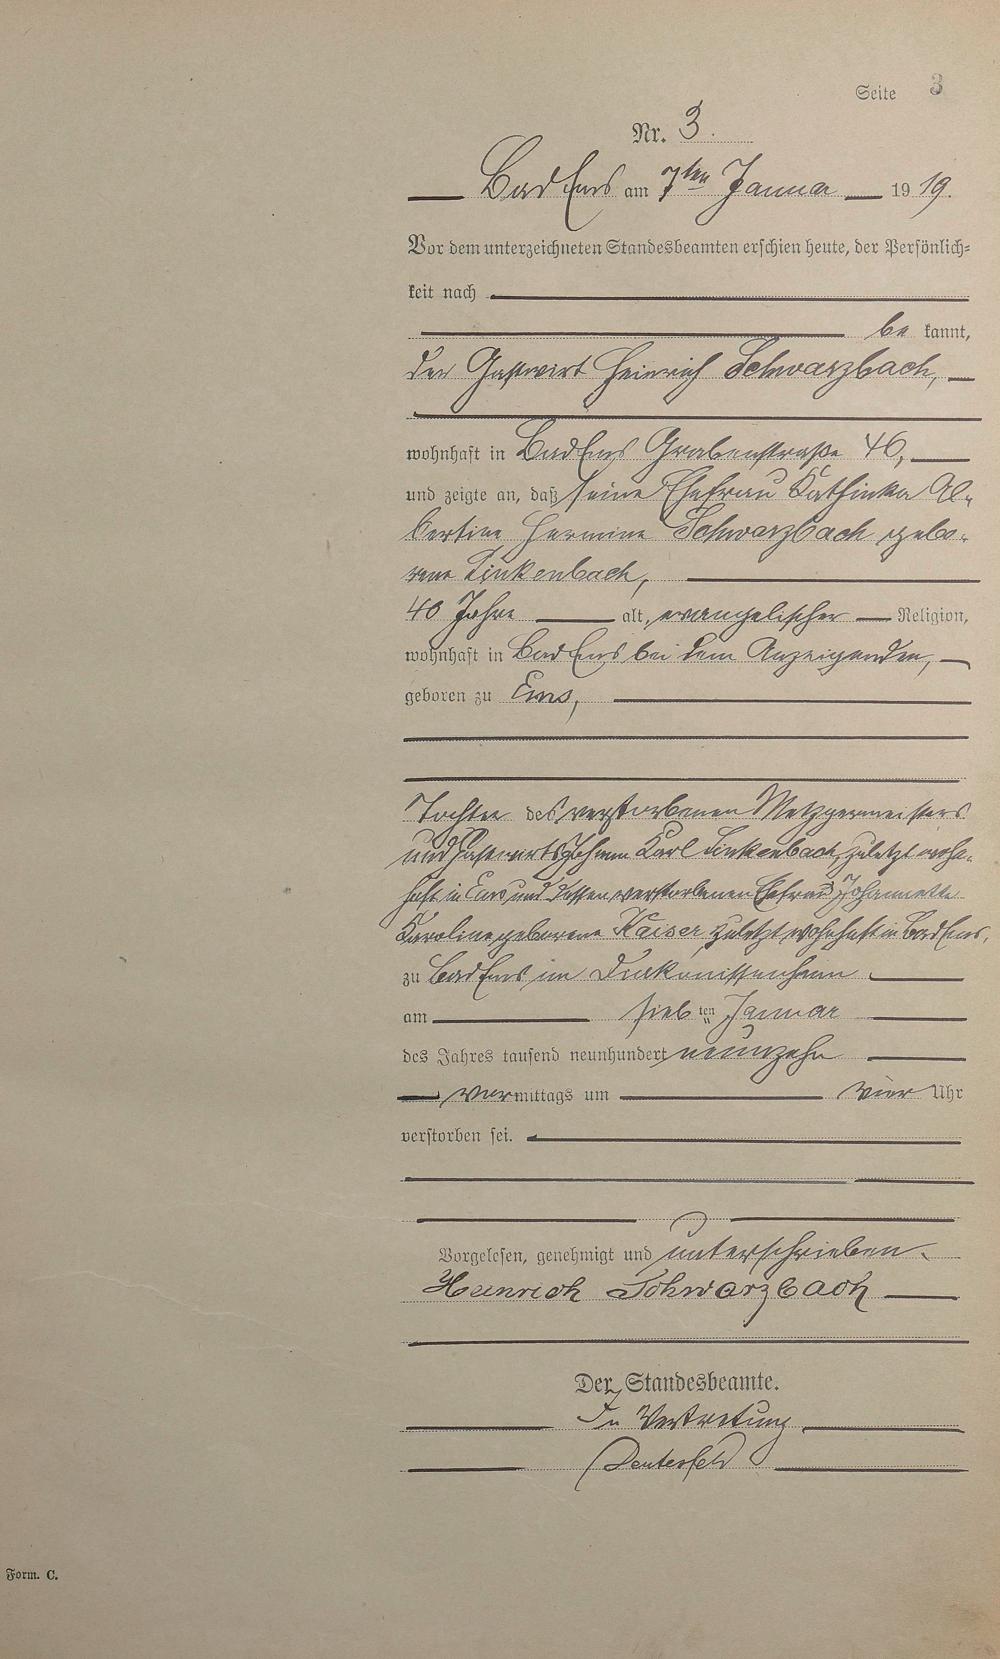 Seite 3
Nr. 3.
Bad Ems am 7ten Janua 1919.
Vor dem unterzeichneten Standesbeamten erschien heute, der Persönlich=
keit nach
be kannt,
der Gastwirt Heinrich Schwarzbach,
wohnhaft in Bad Ems Grabenstraße 46,
und zeigte an, daß seine Ehefrau Kathinka Al-
bertine Hermine Schwarzbach gebo-
rene Linkenbach,
40 Jahre alt, evangelischer Religion,
wohnhaft in Bad Ems bei dem Anzeigenden,
geboren zu Ems,
Tochter des verstorbenen Metzgermeisters
und Gastwirts Johann Karl Linkenbach, zuletzt wohn-
haft in Ems und dessen verstorbenen Ehefrau Johannette
Karoline geborene Kaiser zuletzt wohnhaft in Bad Ems,
zu Bad Ems im Diakonissenheim
am sieb ten Januar
des Jahres tausend neunhundert neunzehn
vormittags um vier Uhr
verstorben sei.
Vorgelesen, genehmigt und unterschrieben.
Heinrich Schwarzbach
Der Standesbeamte.
In Vertretung
Form. C.